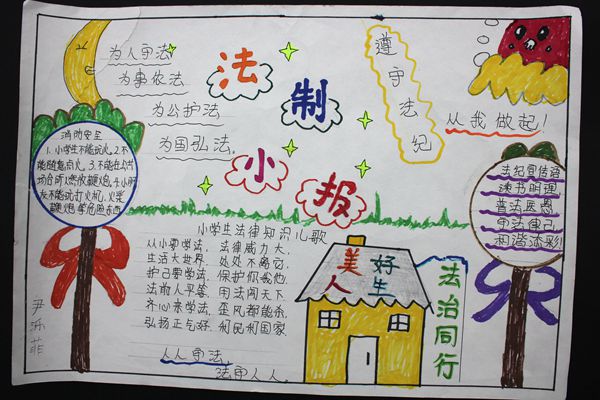 为人守法
为事依法
为公护法
为国弘法
法制小报
遵守法纪
从我做起!
消防安全
1.小学生不能玩火,2.不
能随意点火,3.不能在公共
场合所
小学生法律知识儿歌
从小要学法, 法律威力大,
生活大世界, 处处不离它,
护己要学法, 保护你我他.
法前人平等, 用法闯天下.
齐心来学法, 歪风都能杀.
弘扬正气好, 利民利国家.
人人守法,
法守人人.
美好
人生
法治同行
法纪宣传语
读书明理
普法
守法律己
和谐添彩